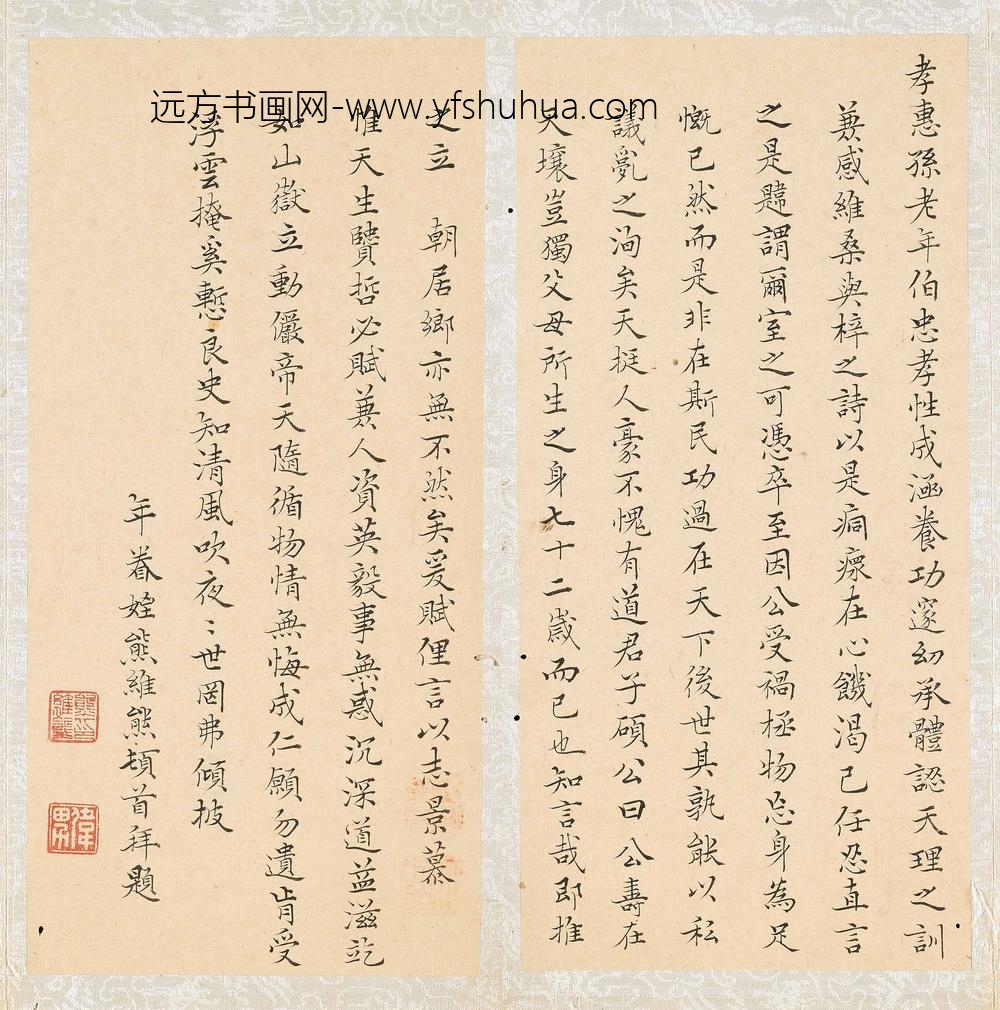 远方书画网-www.yfshuhua.com
孝惠孫老年伯忠孝性成涵養功邃幼承體認天理之訓
兼感維桑與梓之詩以是痌瘝在心饑渴已任忍直言
之是韙謂爾室之可憑卒至因公受禍極物忘身為足
慨已然而是非在斯民功過在天下後世其孰能以私
議亂之洵矣天挺人豪不愧有道君子碩公曰公壽在
天壤豈獨父母所生之身七十二歲而已也知言哉即推
之立 朝居鄉亦無不然矣爰賦俚言以志景慕
惟天生賢哲必賦兼人資英毅事無惑沉深道益滋屹
如山嶽立動儼帝天隨循物情無悔成仁願勿遺肯受
浮雲掩奚慙良史知清風吹夜〻世罔弗傾披
年眷姪熊維熊頓首拜題